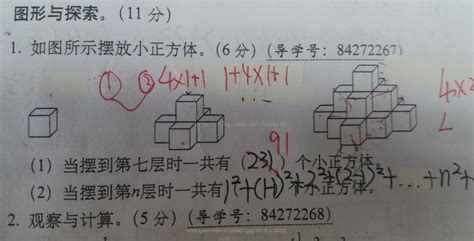 图形与探索。(11 分)
1. 如图所示摆放小正方体。(6 分)(导学号: 84272267)
① ② 4×1+1 1+4×1+1 4×2
...
91
(1) 当摆到第七层时一共有(231)个小正方体。
(2) 当摆到第n层时一共有 小正方体。 +...+n²+
2. 观察与计算。(5 分)(导学号: 84272268)